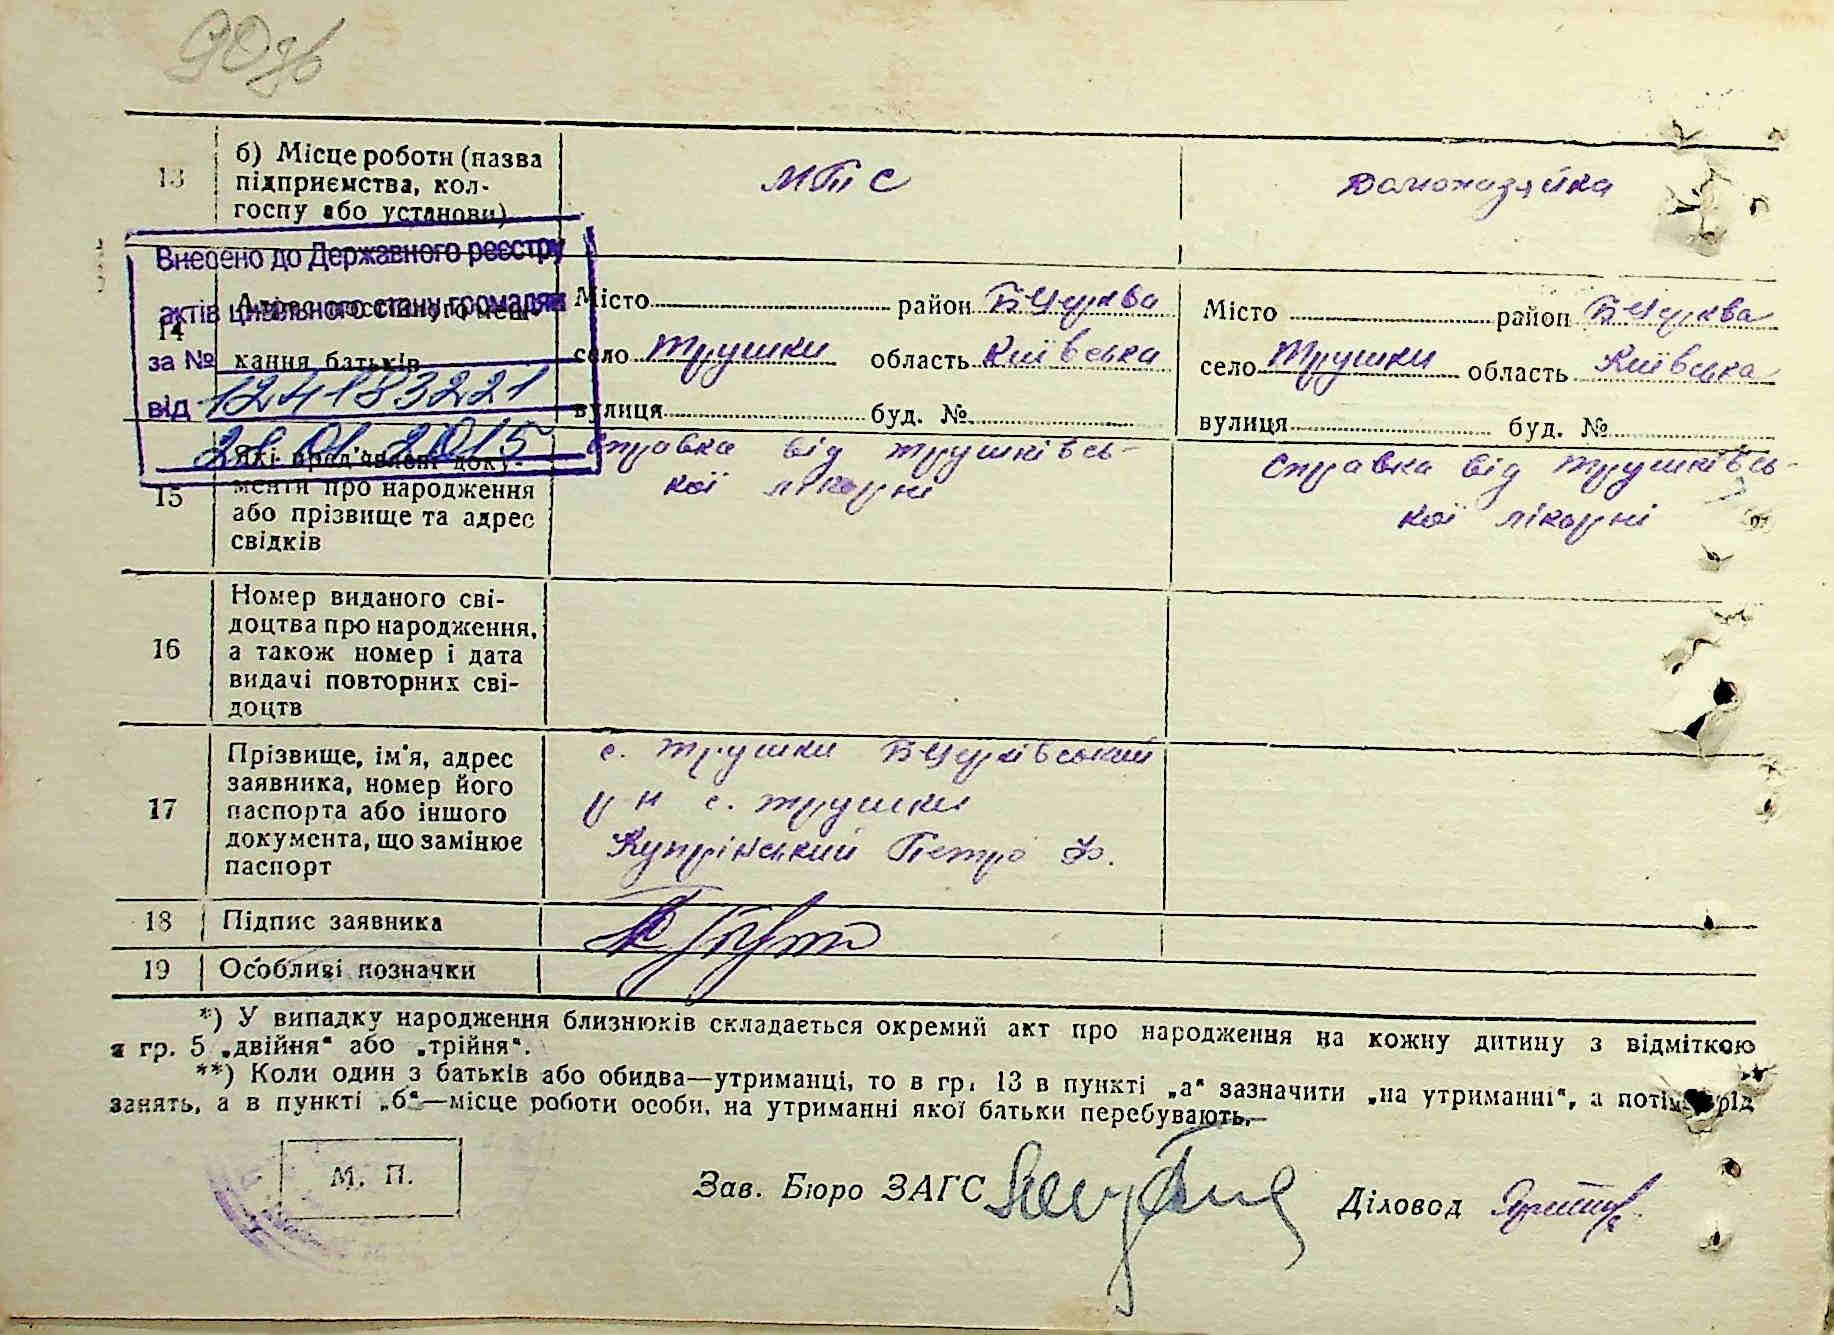 13
б) Місце роботи (назва
підприємства, кол-
госпу або установи)
МТС
Домохазяйка
Внесено до Державного реєстру
актів цивільного стану громадян
за № 124183221
від 28.01.2015
14
Адрес постійного меш-
кання батьків
Місто район Б Церква
село Трушки область Київська
вулиця буд. №
Місто район Б Церква
село Трушки область Київська
вулиця буд. №
15
Які пред'явлені доку-
менти про народження
або прізвище та адрес
свідків
Справка від Трушківсь-
кої лікарні
Справка від Трушківсь-
кої лікарні
16
Номер виданого сві-
доцтва про народження,
а також номер і дата
видачі повторних сві-
доцтв
17
Прізвище, ім'я, адрес
заявника, номер його
паспорта або іншого
документа, що замінює
паспорт
с. Трушки БЦерківський
р н с. Трушки
Купрінський Петро Ф.
18
Підпис заявника
19
Особливі позначки
*) У випадку народження близнюків складається окремий акт про народження на кожну дитину з відміткою
в гр. 5 „двійня“ або „трійня“.
**) Коли один з батьків або обидва—утриманці, то в гр. 13 в пункті „а“ зазначити „на утриманні“, а потім рід
занять, а в пункті „б“—місце роботи особи, на утриманні якої батьки перебувають.—
М. П.
Зав. Бюро ЗАГС
Діловод